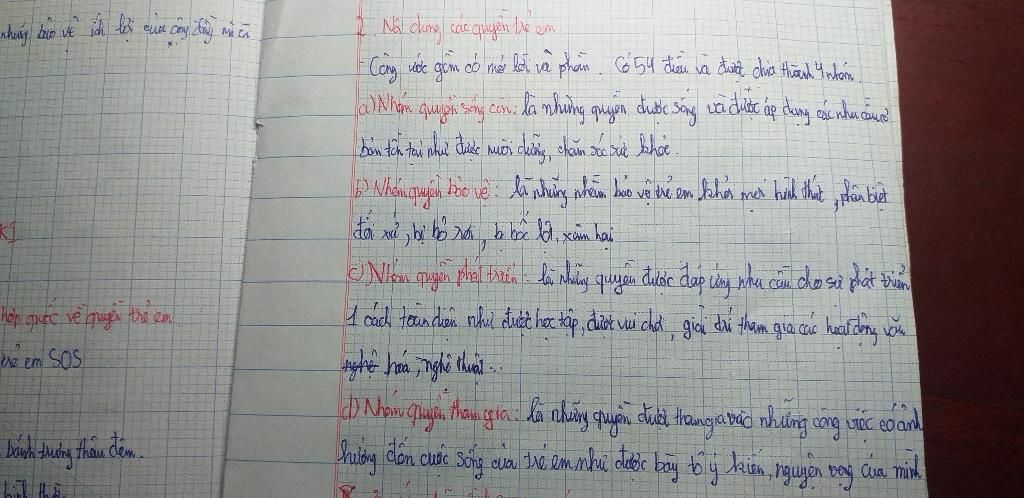 những bảo vệ ích lợi của cộng đồng mà cả
hợp quốc về quyền trẻ em
trẻ em SOS
bánh trưng thâu đêm.
2. Nội dung các quyền trẻ em
- Công ước gồm có mở lời và phần. Có 54 điều và được chia thành 4 nhóm
a) Nhóm quyền sống còn: là những quyền được sống và được áp dụng các nhu cầu cơ
bản tồn tại như được nuôi dưỡng, chăm sóc sức khỏe.
b) Nhóm quyền bảo vệ: là những nhóm bảo vệ trẻ em khỏi mọi hình thức, phân biệt
đối xử, bị bỏ rơi, bị bóc lột, xâm hại
c) Nhóm quyền phát triển: là những quyền được đáp ứng nhu cầu cho sự phát triển
1 cách toàn diện như được học tập, được vui chơi, giải trí tham gia các hoạt động văn
nghệ hoá, nghệ thuật...
d) Nhóm quyền tham gia: là những quyền được tham gia vào những công việc có ảnh
hưởng đến cuộc sống của trẻ em như được bày tỏ ý kiến, nguyện vọng của mình